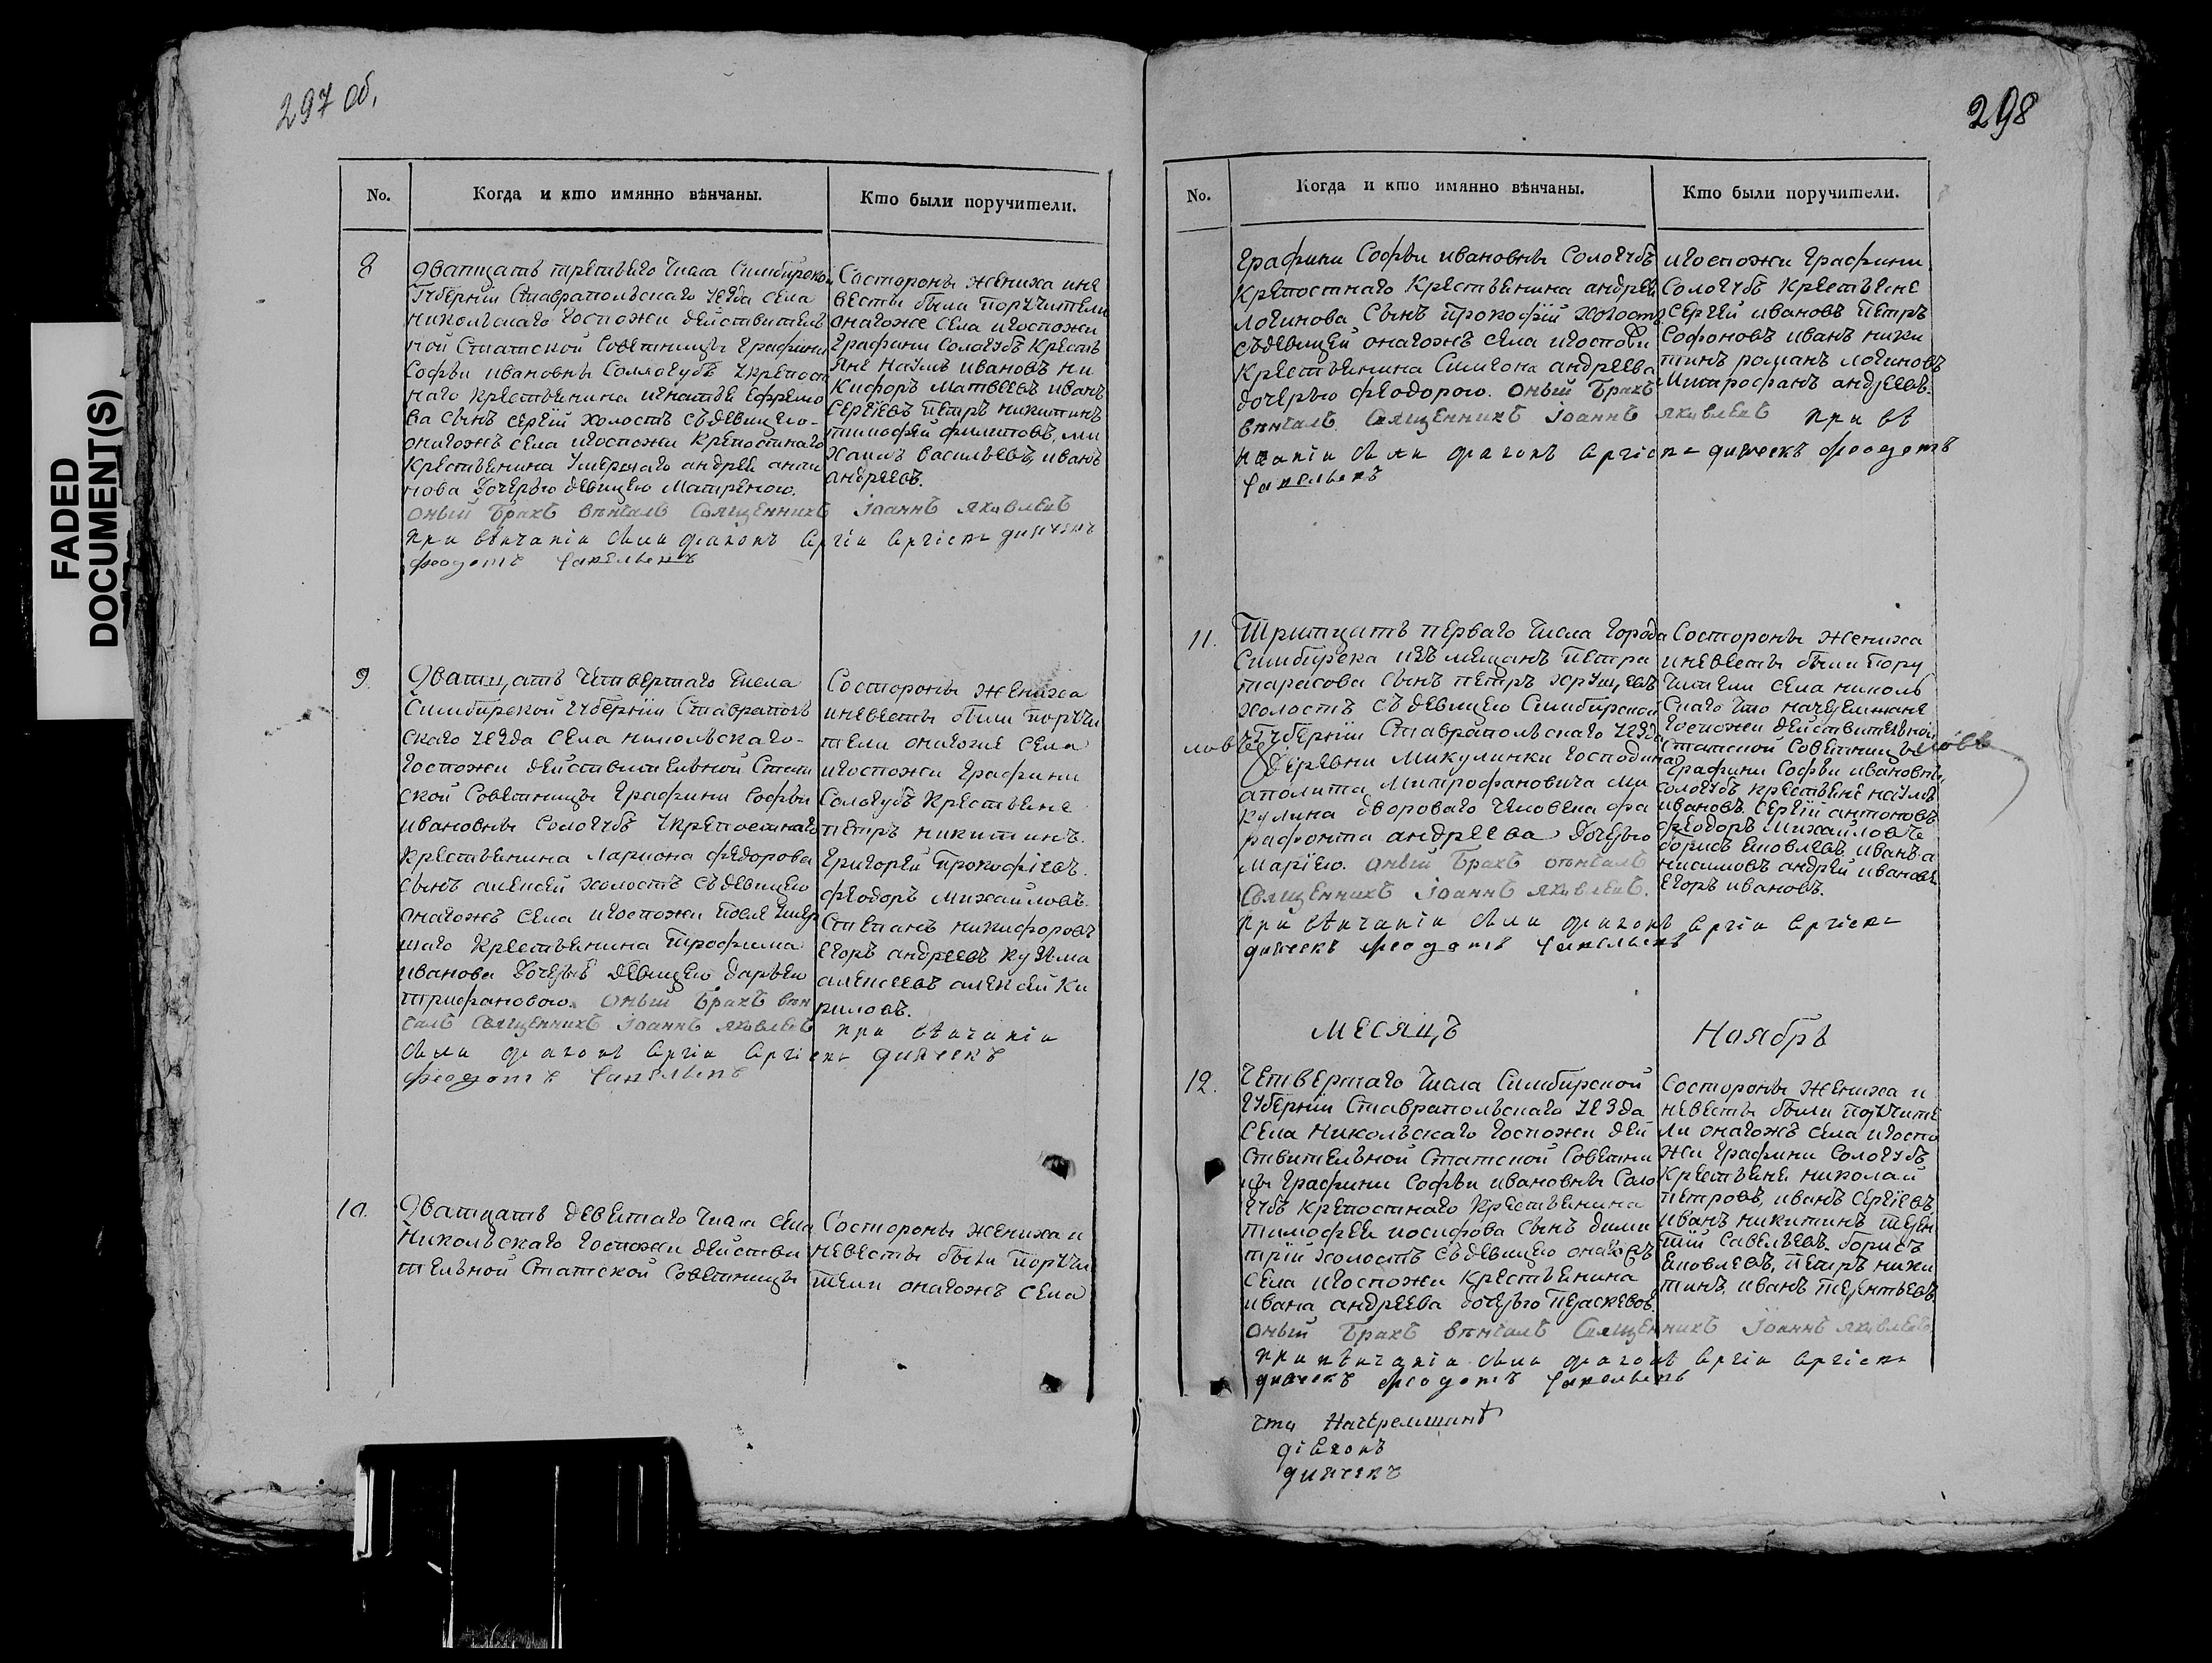 297 об.
No.
Когда и кто имянно вѣнчаны.
Кто были поручители.
8
Дватцать третьего числа Симбирской
Губернїи Ставрапольскаго уезда села
никольскаго госпожи действитель
ной Статской Советницы Графини
Софьи ивановны Соллогубъ Крепост
наго крестьянина игнатья Ефремо
ва сынъ сергїй холостъ съдевицею
онагожъ села игоспожи Крепостнаго
Крестьянина умершаго андрея анти
нова дочерью девицею Матреною.
оный Бракъ вѣнчалъ Священникъ Іоаннъ яковлевъ
при вѣнчаніи были
феодотъ
Состороны жениха ине
весты были поручители
онагоже села игоспожи
Графини Сологубъ Кресть
яне Наумъ ивановъ ни
кифоръ матвеевъ иванъ
сергїевъ петръ никитинъ
тимофей филиповъ, ми
хаилъ васильевъ, иванъ
андреевъ.
9.
Дватцать Четвертаго числа
Симбирской губернїи Ставраполь
скаго уезда села никольскаго
госпожи действительной Стат
ской Советницы Графини Софьи
ивановны Сологубъ Крепостнаго
крестьянина Лариона федорова
сынъ алексей холостъ съдевицею
онагожъ села игоспожи после умер
шаго крестьянина трофима
иванова дочерью девицею дарьею
трифановою. оный Бракъ вѣн
чалъ Священникъ Іоаннъ яковлевъ при вѣнчаніи
были дьячекъ
феодотъ
Состороны жениха
иневесты были поручи
тели онагоже села
игоспожи Графини
Сологубъ Крестьяне
петръ никитинъ.
Григорей прокофїевъ.
феодоръ михайловъ.
Степанъ никифоровъ
егоръ андреевъ кузьма
алексеевъ алексей Ки
риловъ.
10.
Дватцать деветаго числа села
Никольскаго госпожи действи
тельной Статской Советницы
Состороны жениха и
невесты были поручи
тели онагожъ села
298
No.
Когда и кто имянно вѣнчаны.
Кто были поручители.
Графини Софьи ивановны Сологубъ
Крепостнаго Крестьянина андрея
логинова сынъ прокофїй холостъ
съдевицей онагожъ села игоспожи
крестьянина Симиона андреева
дочерью феодорою. оный Бракъ
вѣнчалъ Священникъ Іоаннъ яковлевъ при вѣ
нчаніи были дьячекъ феодотъ
игоспожи Графини
Сологубъ Крестьяне
Сергей ивановъ петръ
Софоновъ иванъ ники
тинъ романъ логиновъ
Митрофанъ андреевъ.
11.
Тритцать перваго числа города
Симбирска изъ мещанъ петра
тарасова сынъ петръ хрущевъ
холостъ съдевицею Симбирской
губернїи Ставрапольскаго уезда
деревни Микулинки господина
аполита Митрофановича Ми
кулина двороваго человека фа
рафонта андреева дочерью
марїею. оный Бракъ вѣнчалъ
Священникъ Іоаннъ яковлевъ.
при вѣнчаніи были
дьячекъ феодотъ
Состороны жениха
иневесты были пору
чители села николь
скаго что начеремшане
госпожи действительной
статской Советницы
Графини Софьи ивановны
Сологубъ крестьяне наумъ
ивановъ. Сергїй антоновъ
феодоръ михайловъ
борисъ яковлевъ иванъ а
нисимовъ андрей ивановъ
егоръ ивановъ.
месяцъ Ноябрь
12.
Четвертаго числа Симбирской
губернїи Ставрапольскаго уезда
села никольскаго госпожи дей
ствительной Статской Советни
цы Графини Софьи ивановны Соло
губъ крепостнаго крестьянина
тимофея иосифова сынъ дими
трїй холостъ съдевицею онагожъ
села игоспожи крестьянина
ивана андреева дочерью праскевою.
оный Бракъ вѣнчалъ Священникъ Іоаннъ яковлевъ
при вѣнчаніи были
дьячекъ феодотъ
Состороны жениха и
невесты были поручите
ли онагожъ села игоспо
жи Графини Сологубъ
крестьяне николай
петровъ, иванъ сергїевъ,
иванъ никитинъ терен
тїй савельевъ. борисъ
яковлевъ, петръ ники
тинъ. иванъ терентьевъ.
что Начеремшанѣ
дїаконъ
дьячекъ
FADED
DOCUMENT(S)